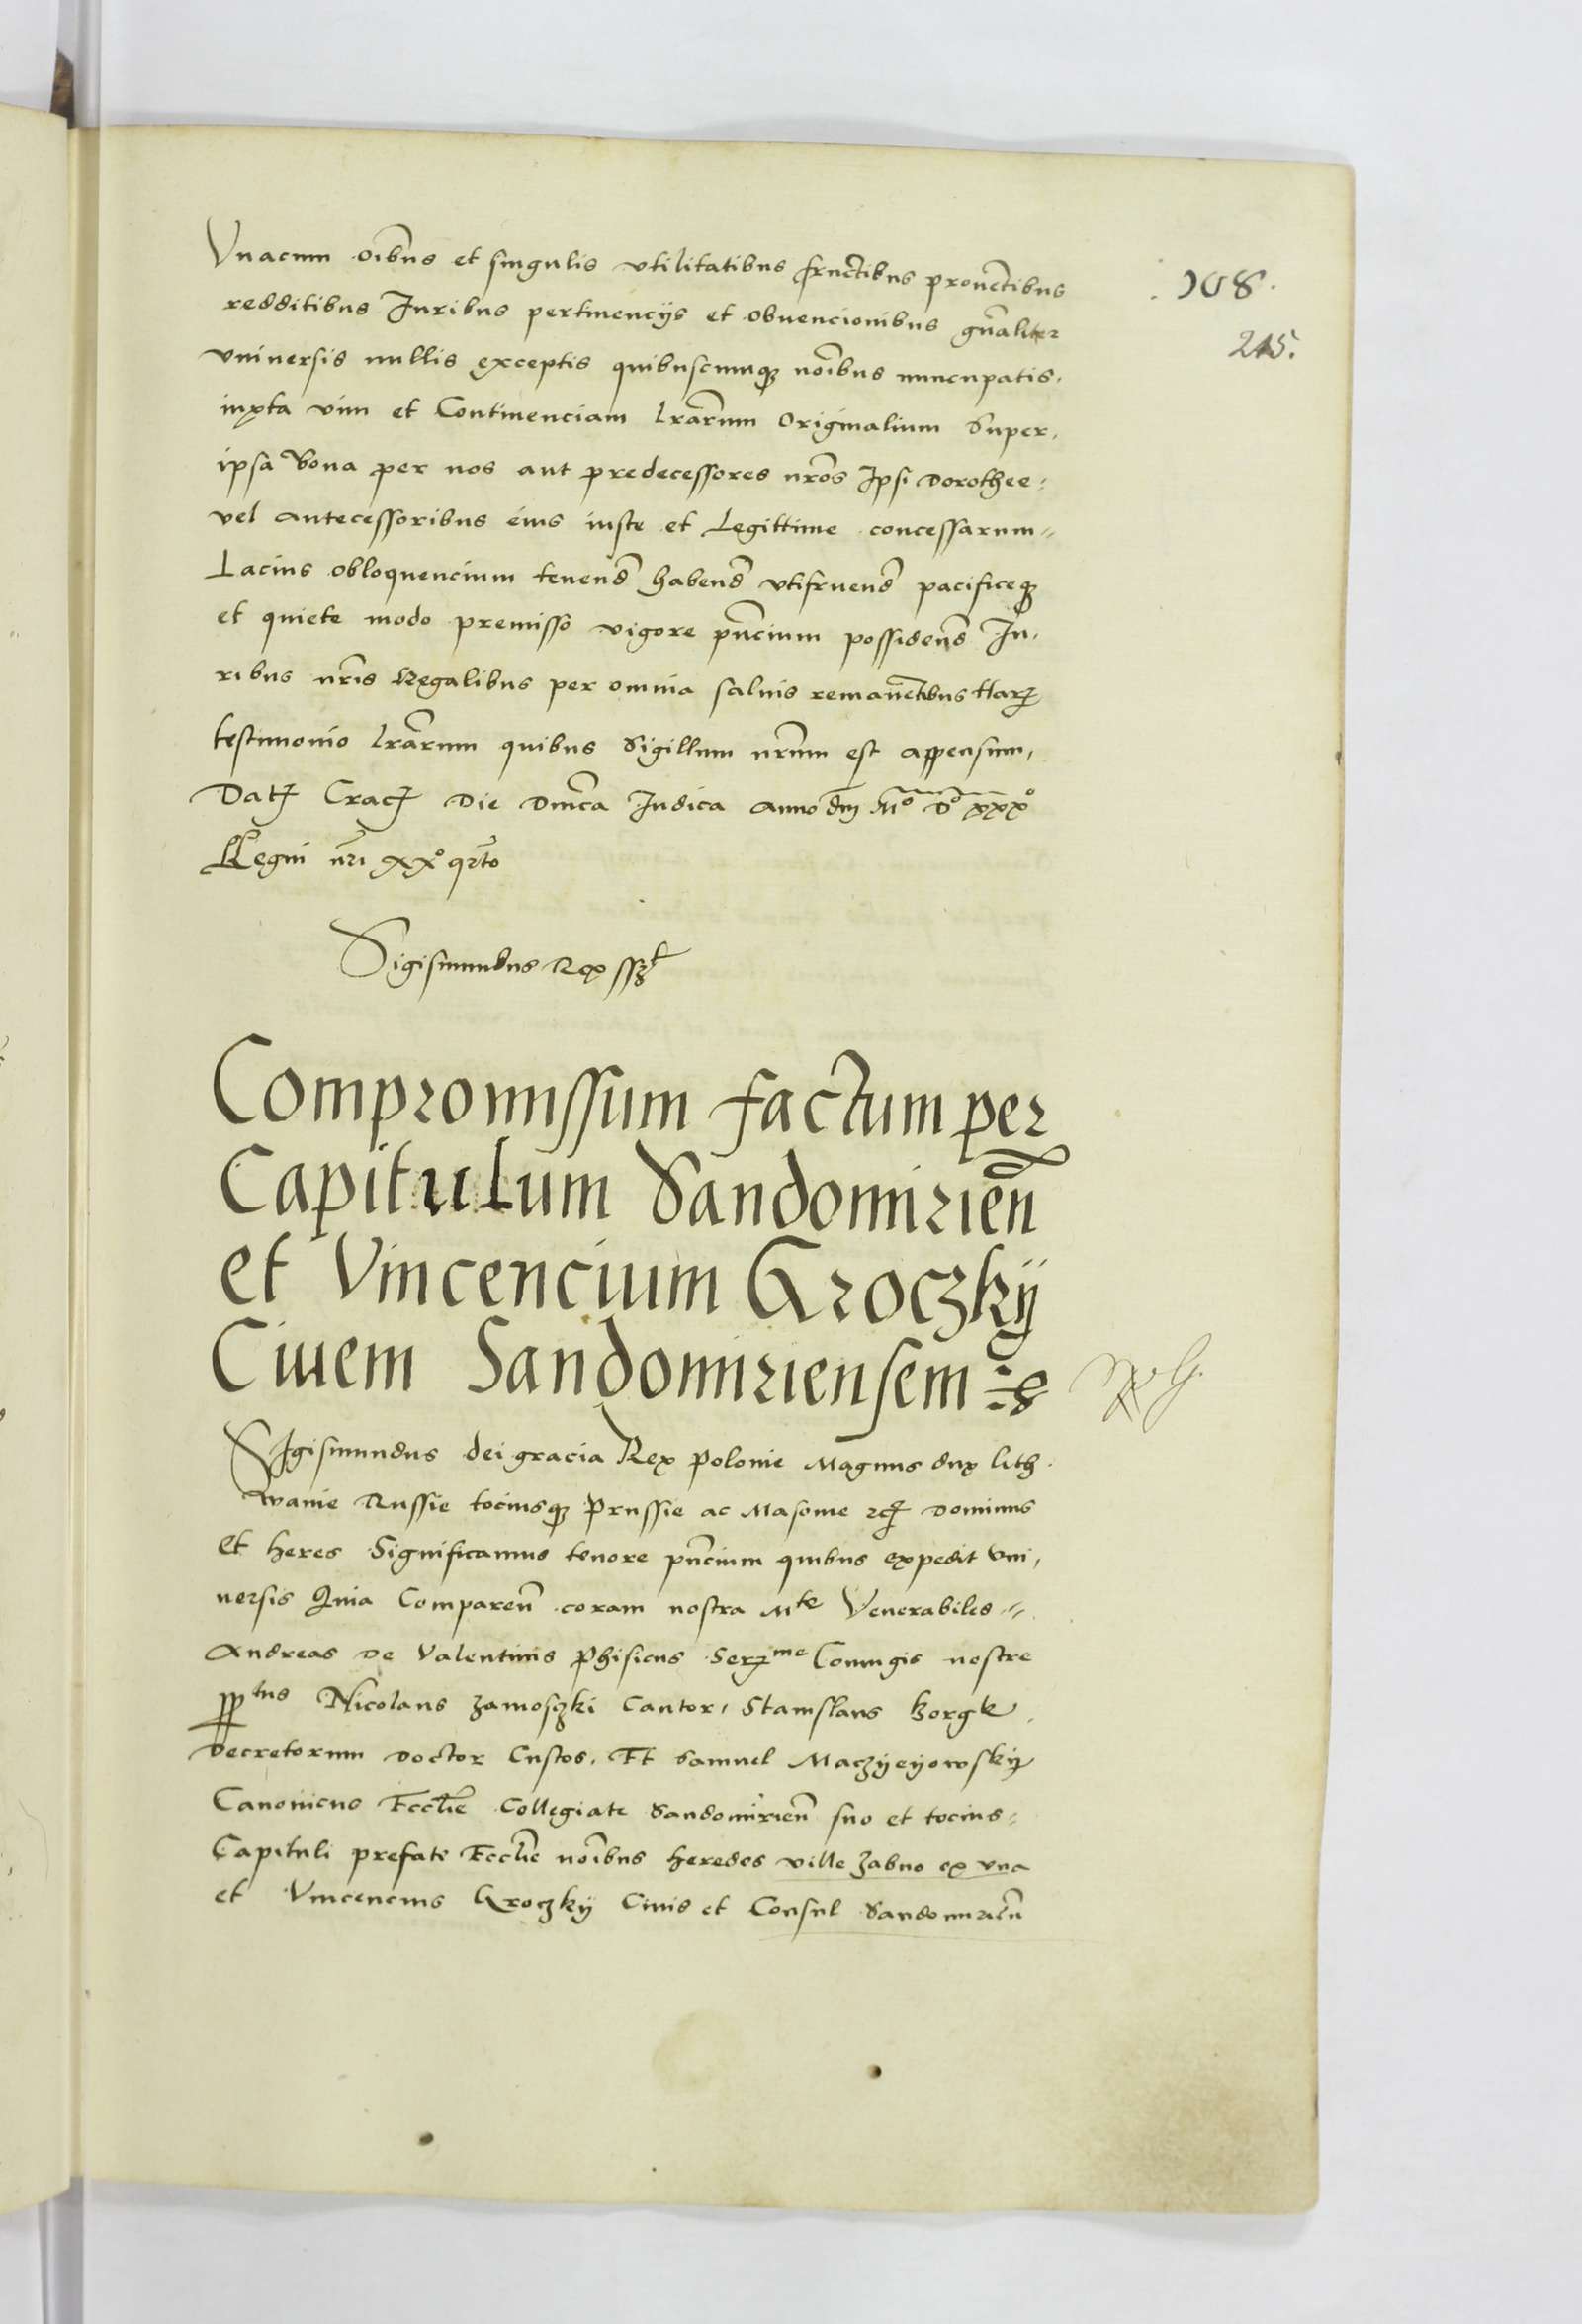 Vnacum oi͞bus et singulis vtilitatibus fructibus prouentibus
108.
redditibus Iuribus pertinencijs et obuencionibus gn͞aliter
215.
vniuersis nullis exceptis quibuscumqꝫ no͞ibus nuncupatis.
iuxta vim et Continenciam lr͞arum Originalium Super,
ipsa bona per nos aut predecessores nr͞os Ipsi Dorothee:
vel antecessoribus eius iuste et Legittime concessarum=
Lacius obloquencium tenend͞ habend͞ vtifruend͞ pacificeqꝫ
et quiete modo premisso vigore pn͞cium possidend͞ Iu,
ribus nr͞is Regalibus per omnia saluis remanen͞tibus Harꝫ
testimonio lr͞arum quibus Sigillum nr͞um est appensum,
Datꝫ Cracꝫ Die Dnĩca Iudica anno dnĩ Mo Do xxxo
Regni nr͞i xxo qr͞to
Sigismundus Rex sszt
Compromissum factum per
Capitulum Sandomirien͞
et Vincencium Groczkij
Ciuem Sandomiriensem
Sigismundus dei gracia Rex Polonie Magnus dux lith.
wanie Russie tociusqꝫ Prussie ac Masouie zcꝫ Dominus
Et heres Significamus tenore pn͞cium quibus expedit vni,
uersis Quia Comparen͞ coram nostra Mte Venerabiles=
Andreas De Valentinis Phisicus Serꝫme Coniugis nostre
pptus Nicolaus zamosczki Cantor, Stanislaus borgk
Decretorum Doctor Custos, Et Samuel Maczyeyowskij
Canonicus Eccl͞ie Collegiate Sandomirien͞ suo et tocius=
Capituli prefate Eccl͞ie no͞ibus heredes ville Zabno ex vna
et Vincencius Groczkij Ciuis et Consul Sandomirien͞